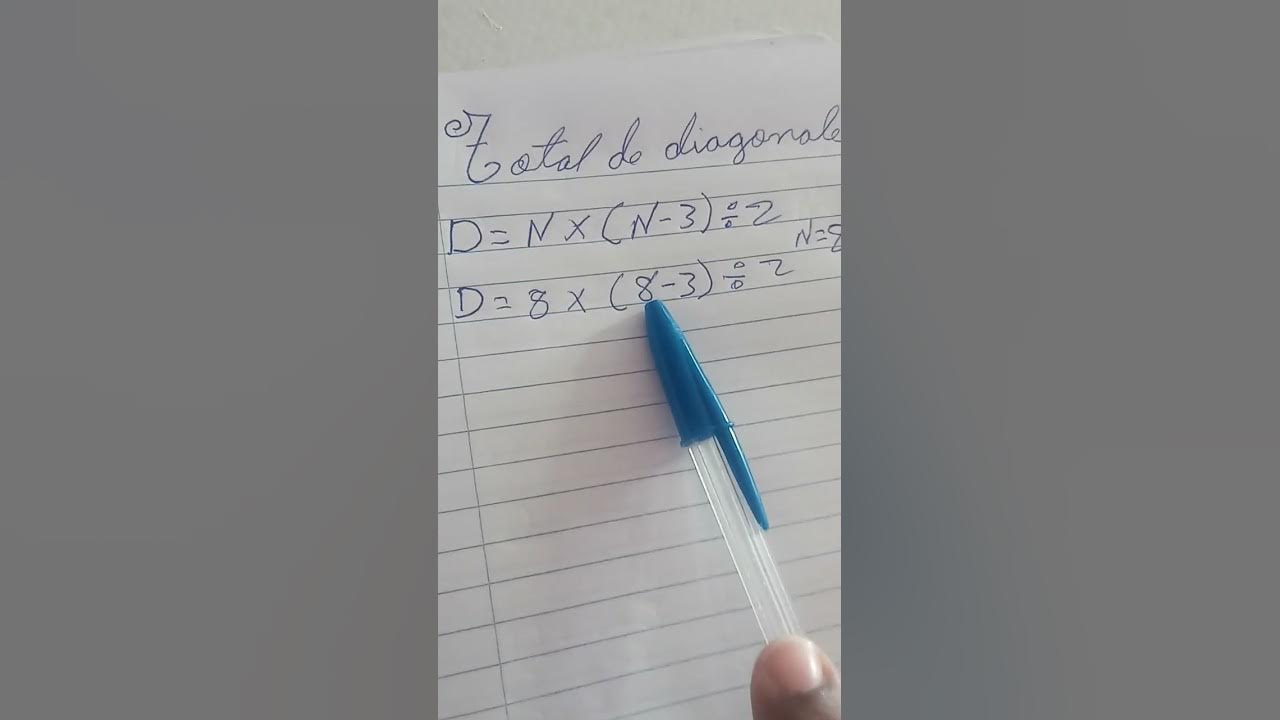 Total de diagonale
D = N × (N - 3) ÷ 2
N = 8
D = 8 × (8 - 3) ÷ 2